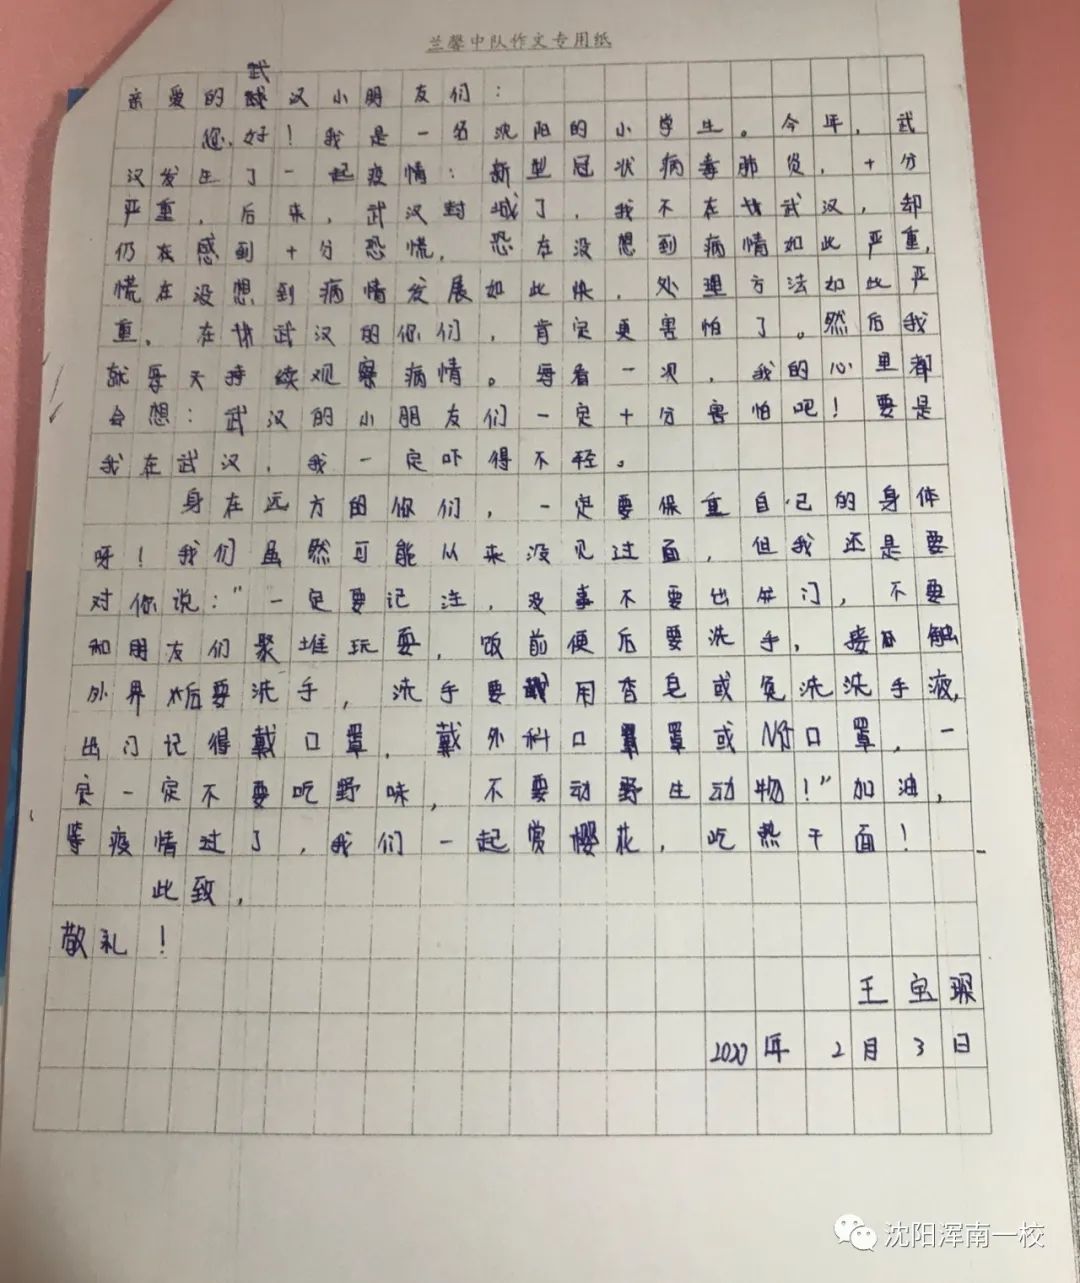 兰馨中队作文专用纸
武
亲爱的汉小朋友们：
您好！我是一名沈阳的小学生。今年，武
汉发生了一起疫情：新型冠状病毒肺炎，十分
严重，后来，武汉封城了，我不在武汉，却
仍在感到十分恐慌，恐在没想到病情如此严重，
慌在没想到病情发展如此快，处理方法如此严
重。在武汉的你们，肯定更害怕了。然后我
就每天持续观察病情。每看一次，我的心里都
会想：武汉的小朋友们一定十分害怕吧！要是
我在武汉，我一定吓得不轻。
身在远方的你们，一定要保重自己的身体
呀！我们虽然可能从来没见过面，但我还是要
对你说：“一定要记注，没事不要出门，不要
和朋友们聚堆玩耍，饭前便后要洗手，接触
外界后要洗手，洗手要用香皂或免洗洗手液，
出门记得戴口罩，戴外科口罩或N95口罩，一
定一定不要吃野味，不要动野生动物！”加油，
等疫情过了，我们一起赏樱花，吃热干面！
此致，
敬礼！
王宝琛
2020年2月3日
沈阳浑南一校